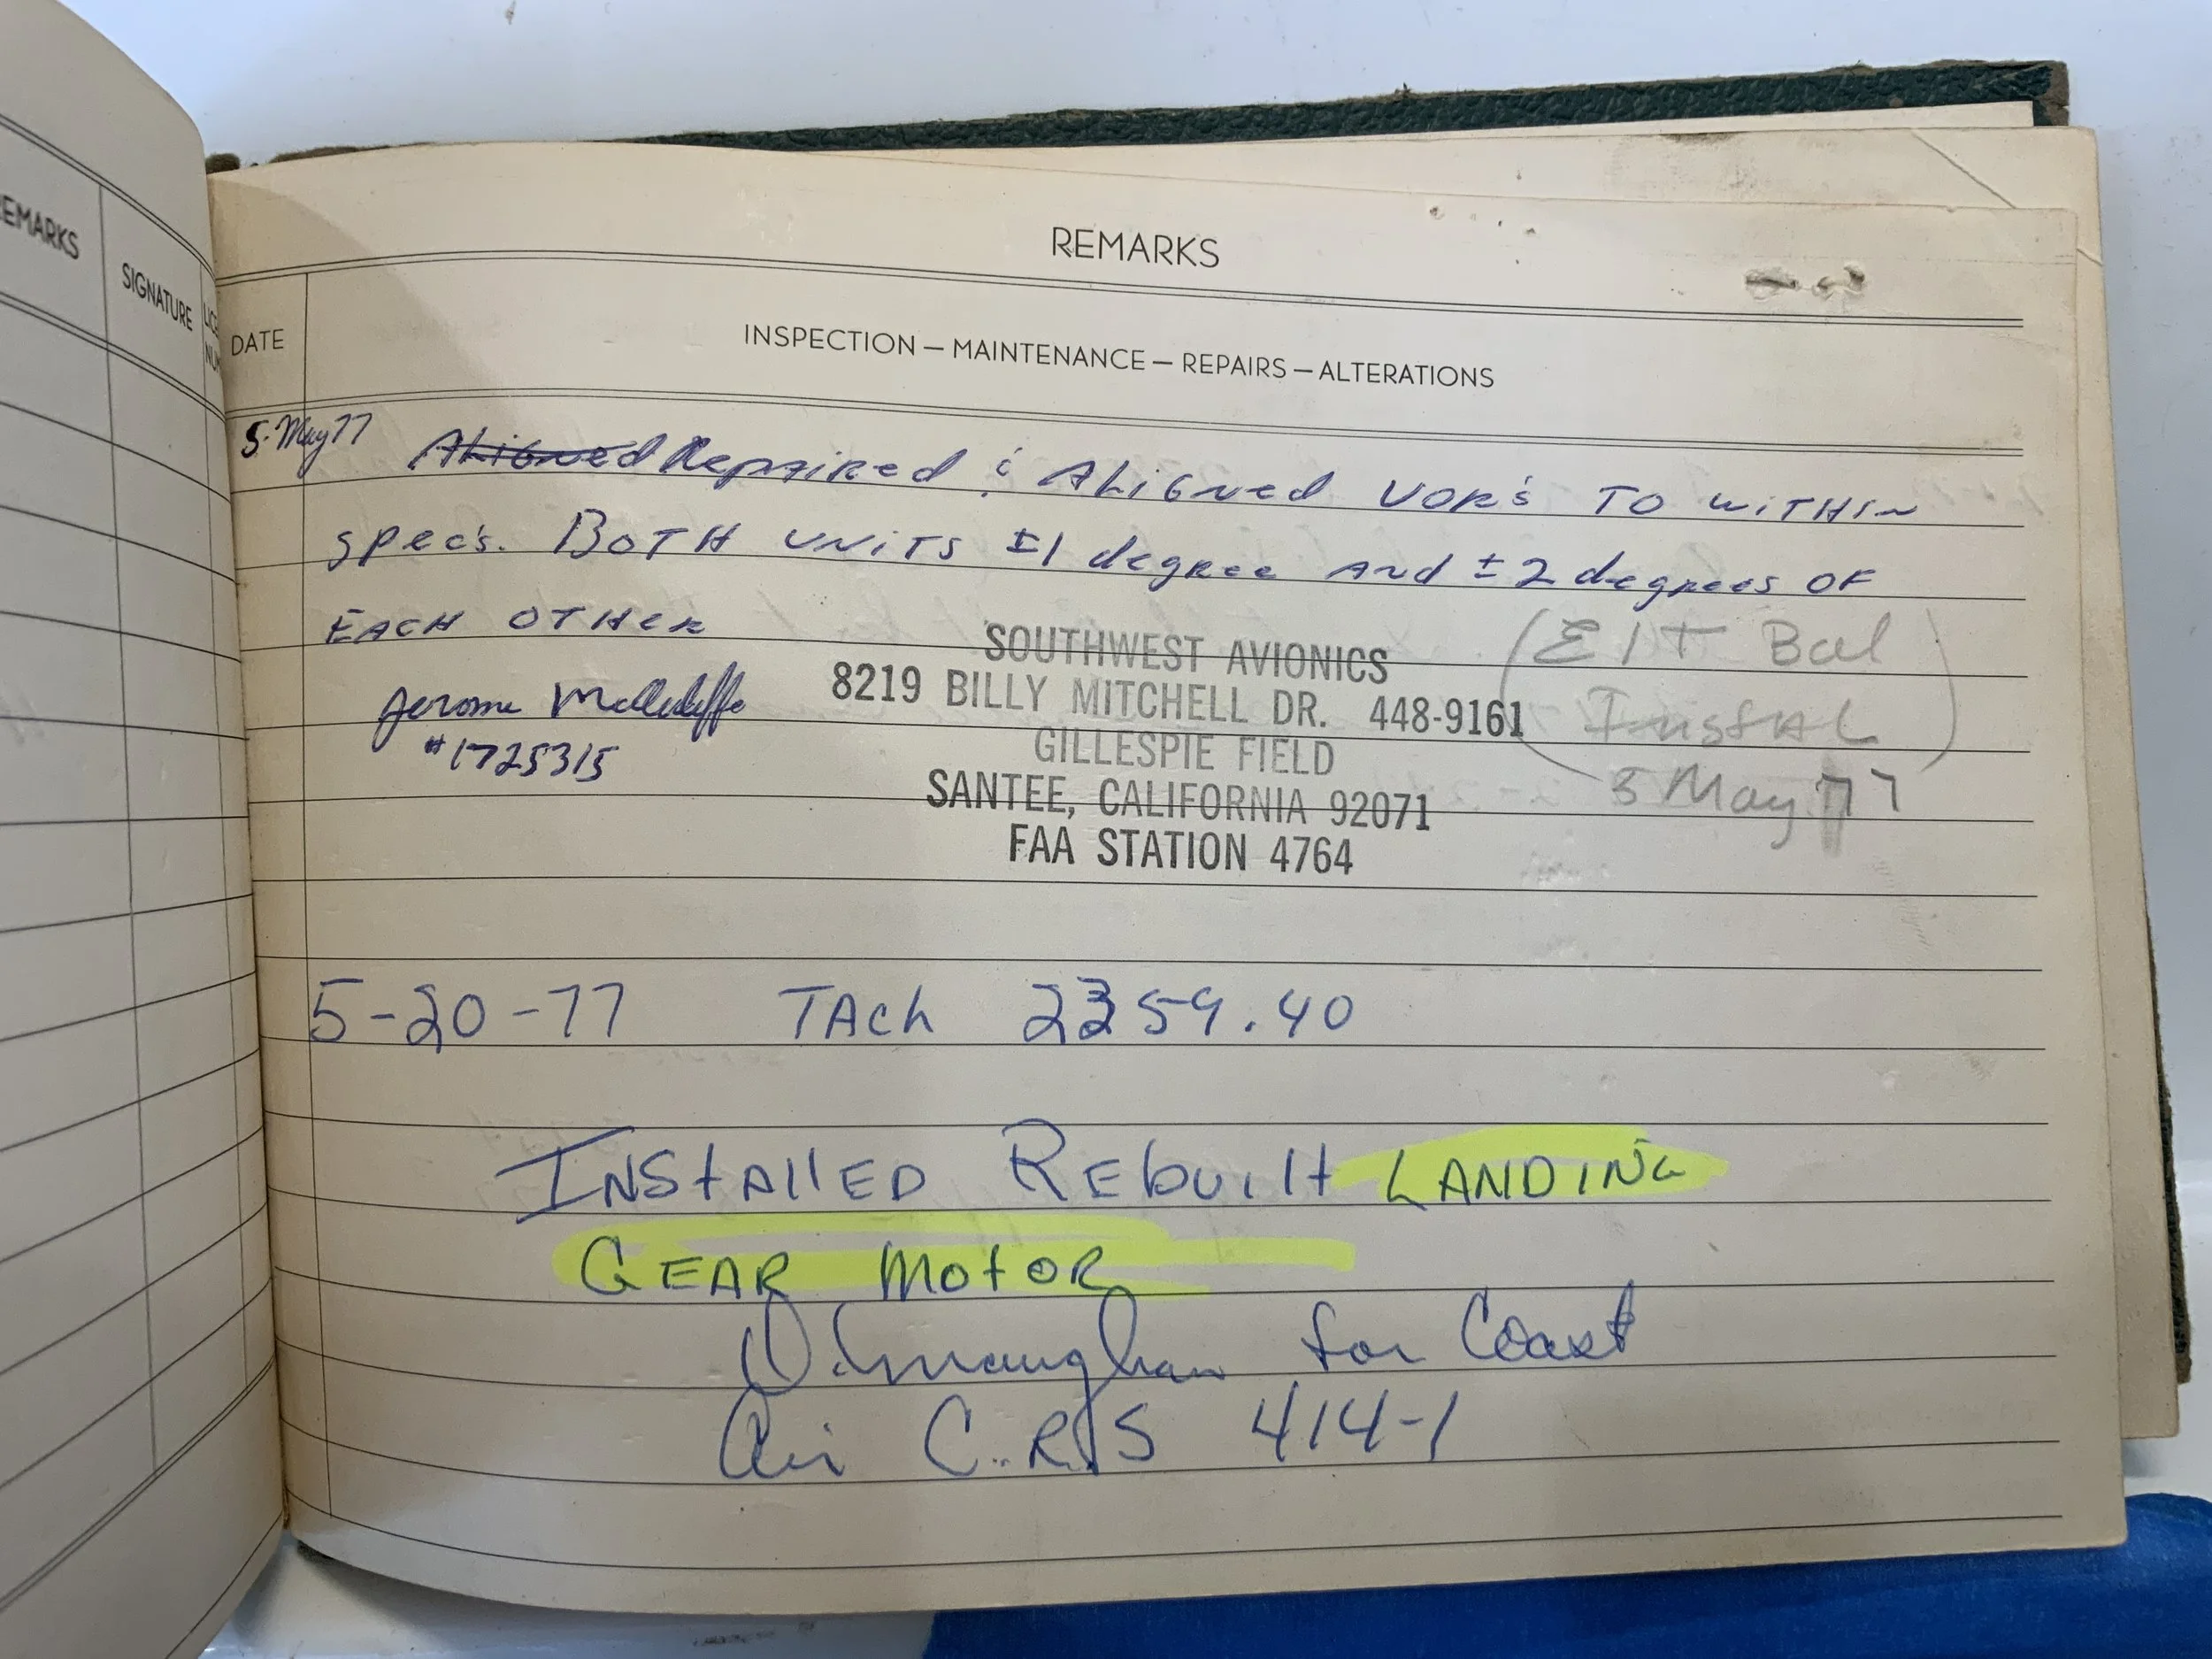 REMARKS
SIGNATURE
REMARKS
DATE
INSPECTION — MAINTENANCE — REPAIRS — ALTERATIONS
5 May 77 Aligned Repaired & Aligned VOR's TO WITHIN
specs. BOTH UNITS ±1 degree And ±2 degrees OF
EACH OTHER
(E/T Bal
SOUTHWEST AVIONICS
Jerome
8219 BILLY MITCHELL DR. 448-9161
Instal)
#1725315
GILLESPIE FIELD
5 May 77
SANTEE, CALIFORNIA 92071
FAA STATION 4764
5-20-77 TAch 2359.40
INStAllED REbuilt LANDING
GEAR MotOR
for Coast
Air C.R.S 414-1